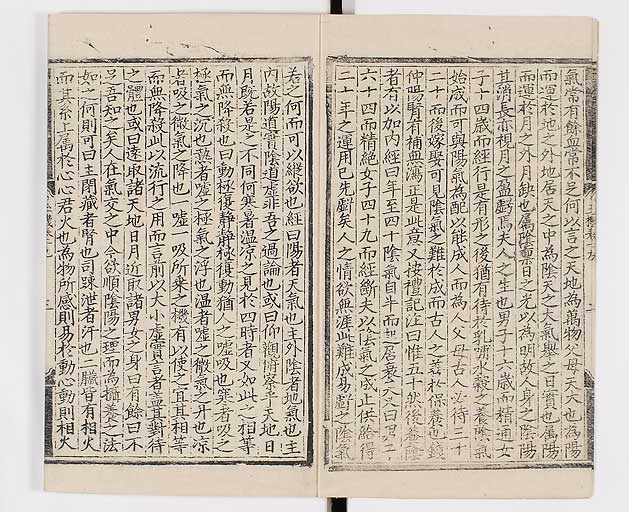 氣常有餘血常不足何以言之天地為萬物父母天大也為陽
而運於地之外地居天之中為陰天之大氣舉之日實也屬陽
而運於月之外月缺也屬陰稟日之光以為明故人身之陰陽
其消長亦視月之盈虧焉夫人之生也男子十六歲而精通女
子十四歲而經行是有形之後猶有待於乳哺水穀之養陰氣
始成而可與陽氣為配以能成人而為人父母古人必待三十
二十而後嫁娶可見陰氣之難於成而古人之善於保養也錢
仲陽腎有補無瀉正是此意又按禮記註曰惟五十然後養陰
者有以加內經曰年至四十陰氣自半而起居衰矣又曰男子
六十四而精絕女子四十九而經斷夫以陰氣之成止供給得
二十年之運用已先虧矣人之情欲無涯此難成易虧之陰氣
若之何而可以縱欲也經曰陽者天氣也主外陰者地氣也主
內故陽道實陰道虛非吾之過論也或曰仰觀俯察乎天地日
月既若是之不同何寒暑溫涼之見於四時者又如此之相等
而無降殺也曰動極復靜靜極復動猶人之噓吸也寒者吸之
極氣之沉也熱者噓之極氣之浮也溫者噓之微氣之升也涼
者吸之微氣之降也一噓一吸所乘之機有以使之宜其相等
而無降殺此以流行之用而言前以大小虛實言者蓋其對待
之體也或曰遠取諸天地日月近取諸男女之身曰有餘曰不
足吾知之矣人在氣交之中今欲順陰陽之理而為攝養之法
如之何則可曰主閉藏者腎也司疎泄者肝也二臟皆有相火
而其系上屬於心心君火也為物所感則易於動心動則相火